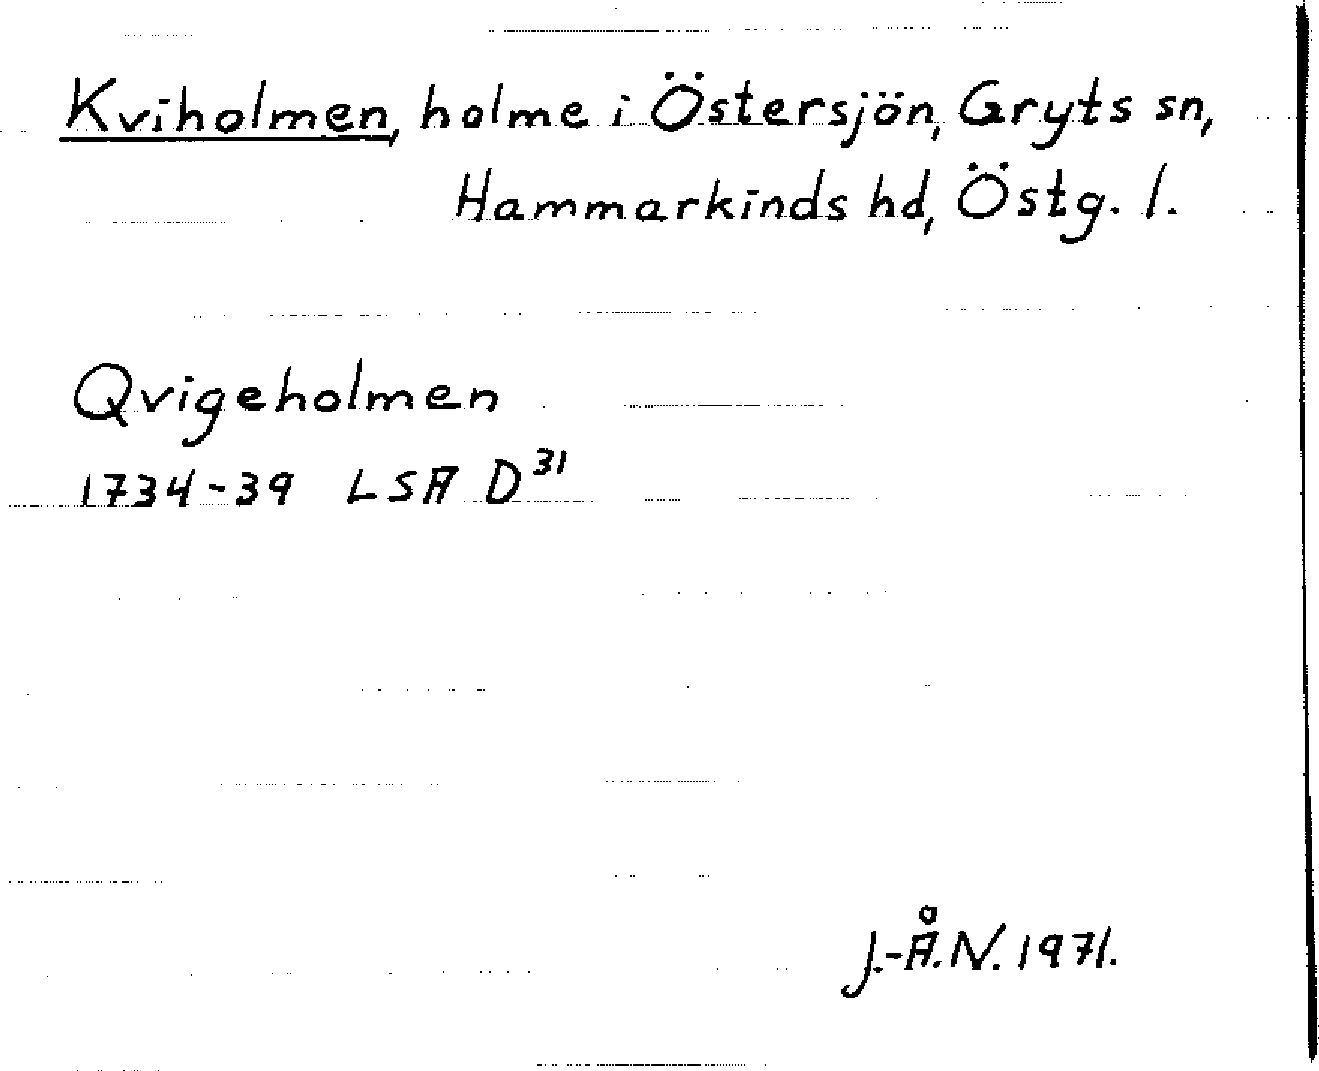 Kviholmen, holme i Östersjön, Gryts sn,
Hammarkinds hd, Östg. l.
Qvigeholmen
1734-39 LSA D³¹
J.-Å.N. 1971.